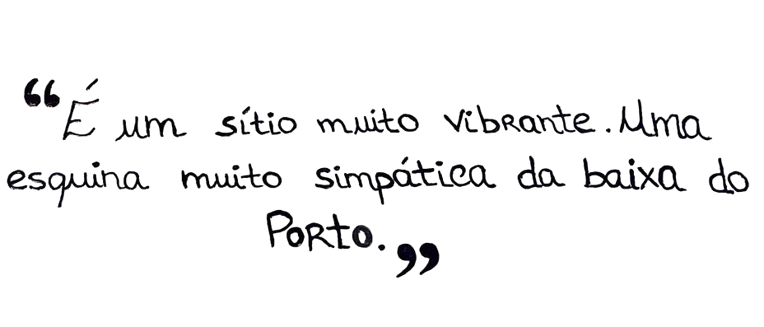 “É um sítio muito vibrante. Uma
esquina muito simpática da baixa do
Porto.”